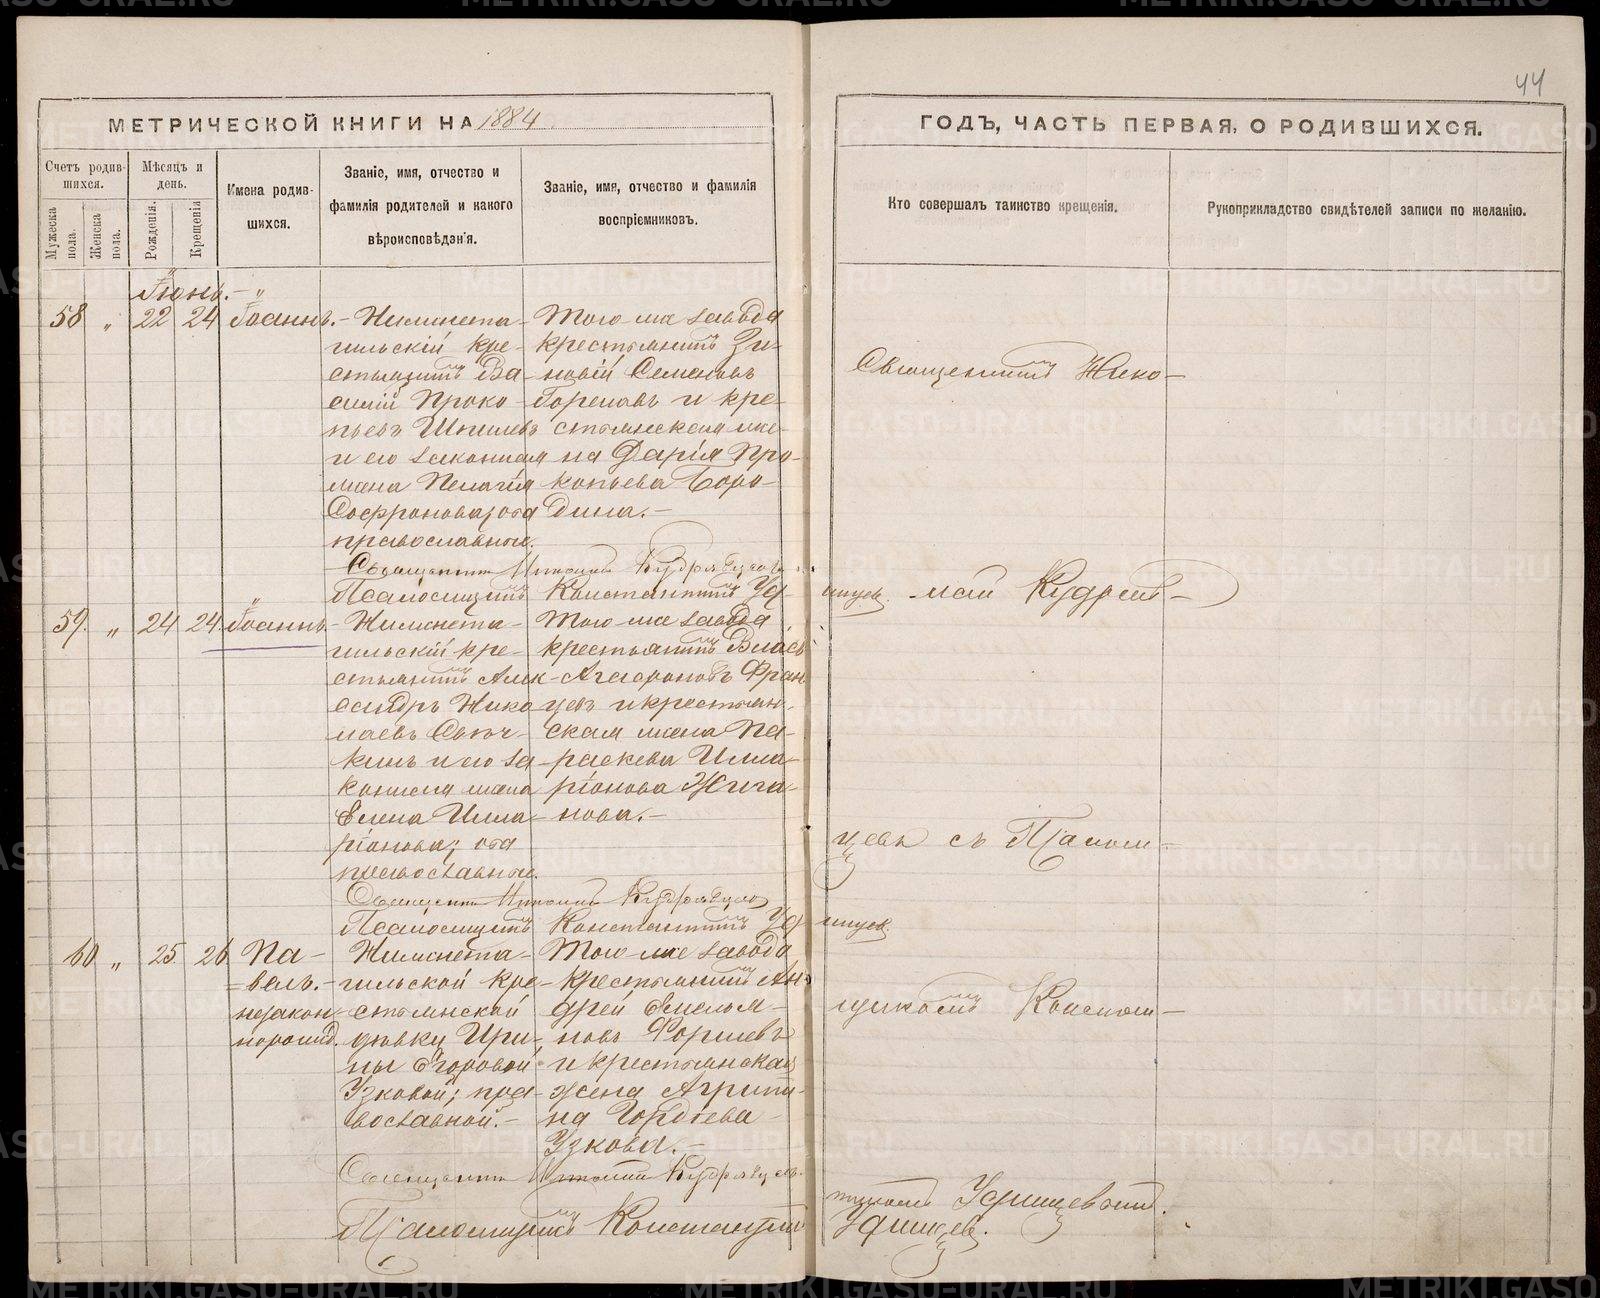 44
МЕТРИЧЕСКОЙ КНИГИ НА 1884
ГОДЪ, ЧАСТЬ ПЕРВАЯ, О РОДИВШИХСЯ.
Счетъ родив-
шихся.
Мужеска пола.
Женска пола.
Мѣсяцъ и
день.
Рожденія.
Крещенія
Имена родив-
шихся.
Званіе, имя, отчество и
фамилія родителей и какого
вѣроисповѣданія.
Званіе, имя, отчество и фамилія
воспріемниковъ.
Кто совершалъ таинство крещенія.
Рукоприкладство свидѣтелей записи по желанію.
Іюнь.
58 " 22 24 Іоаннъ.
Нижнета-
гильскій кре-
стьянинъ Ва-
силій Проко-
пьевъ
и его законная
жена Пелагія
Софронова; оба
православные.
Того же завода
крестьянинъ Зи-
новій Семеновъ
Горсловъ и кре-
стьянская же-
на Дарія Про-
копьева Боро-
дина.
Священникъ Николай Кудрявцевъ
Псаломщикъ Константинъ Уд-
59. " 24 24 Іоаннъ.
Нижнета-
гильскій кре-
стьянинъ Алек-
сандръ Нико-
лаевъ
и его за-
конная жена
Елена Илла-
ріонова; оба
православные.
Того же завода
крестьянинъ Власъ
Агафоновъ Фран-
цевъ и крестьян-
ская жена Па-
раскева Илла-
ріонова Жига-
нова.
Священникъ Николай Кудрявцевъ
Псаломщикъ Константинъ
60 " 25 26 Па-
велъ.
незакон-
норожд.
Нижнета-
гильской кре-
стьянской
дѣвки Ири-
ны Егоровой
Узковой; пра-
вославной.
Того же завода
крестьянинъ Ан-
дрей Емелья-
новъ
и крестьянская
жена Агрипи-
на Гордѣева
Узкова.
Священникъ Николай Кудрявцевъ
Псаломщикъ Константинъ
Священникъ Нико-
лай Кудряв-
цевъ съ Псалом-
щикомъ Конст-